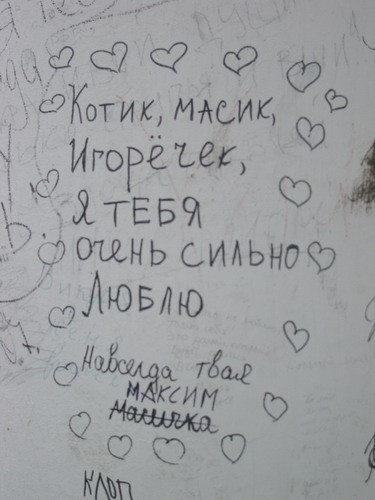 Котик, масик,
Игорёчек,
я тебя
очень сильно
люблю
навсегда твая
максим
Масичка
клоп